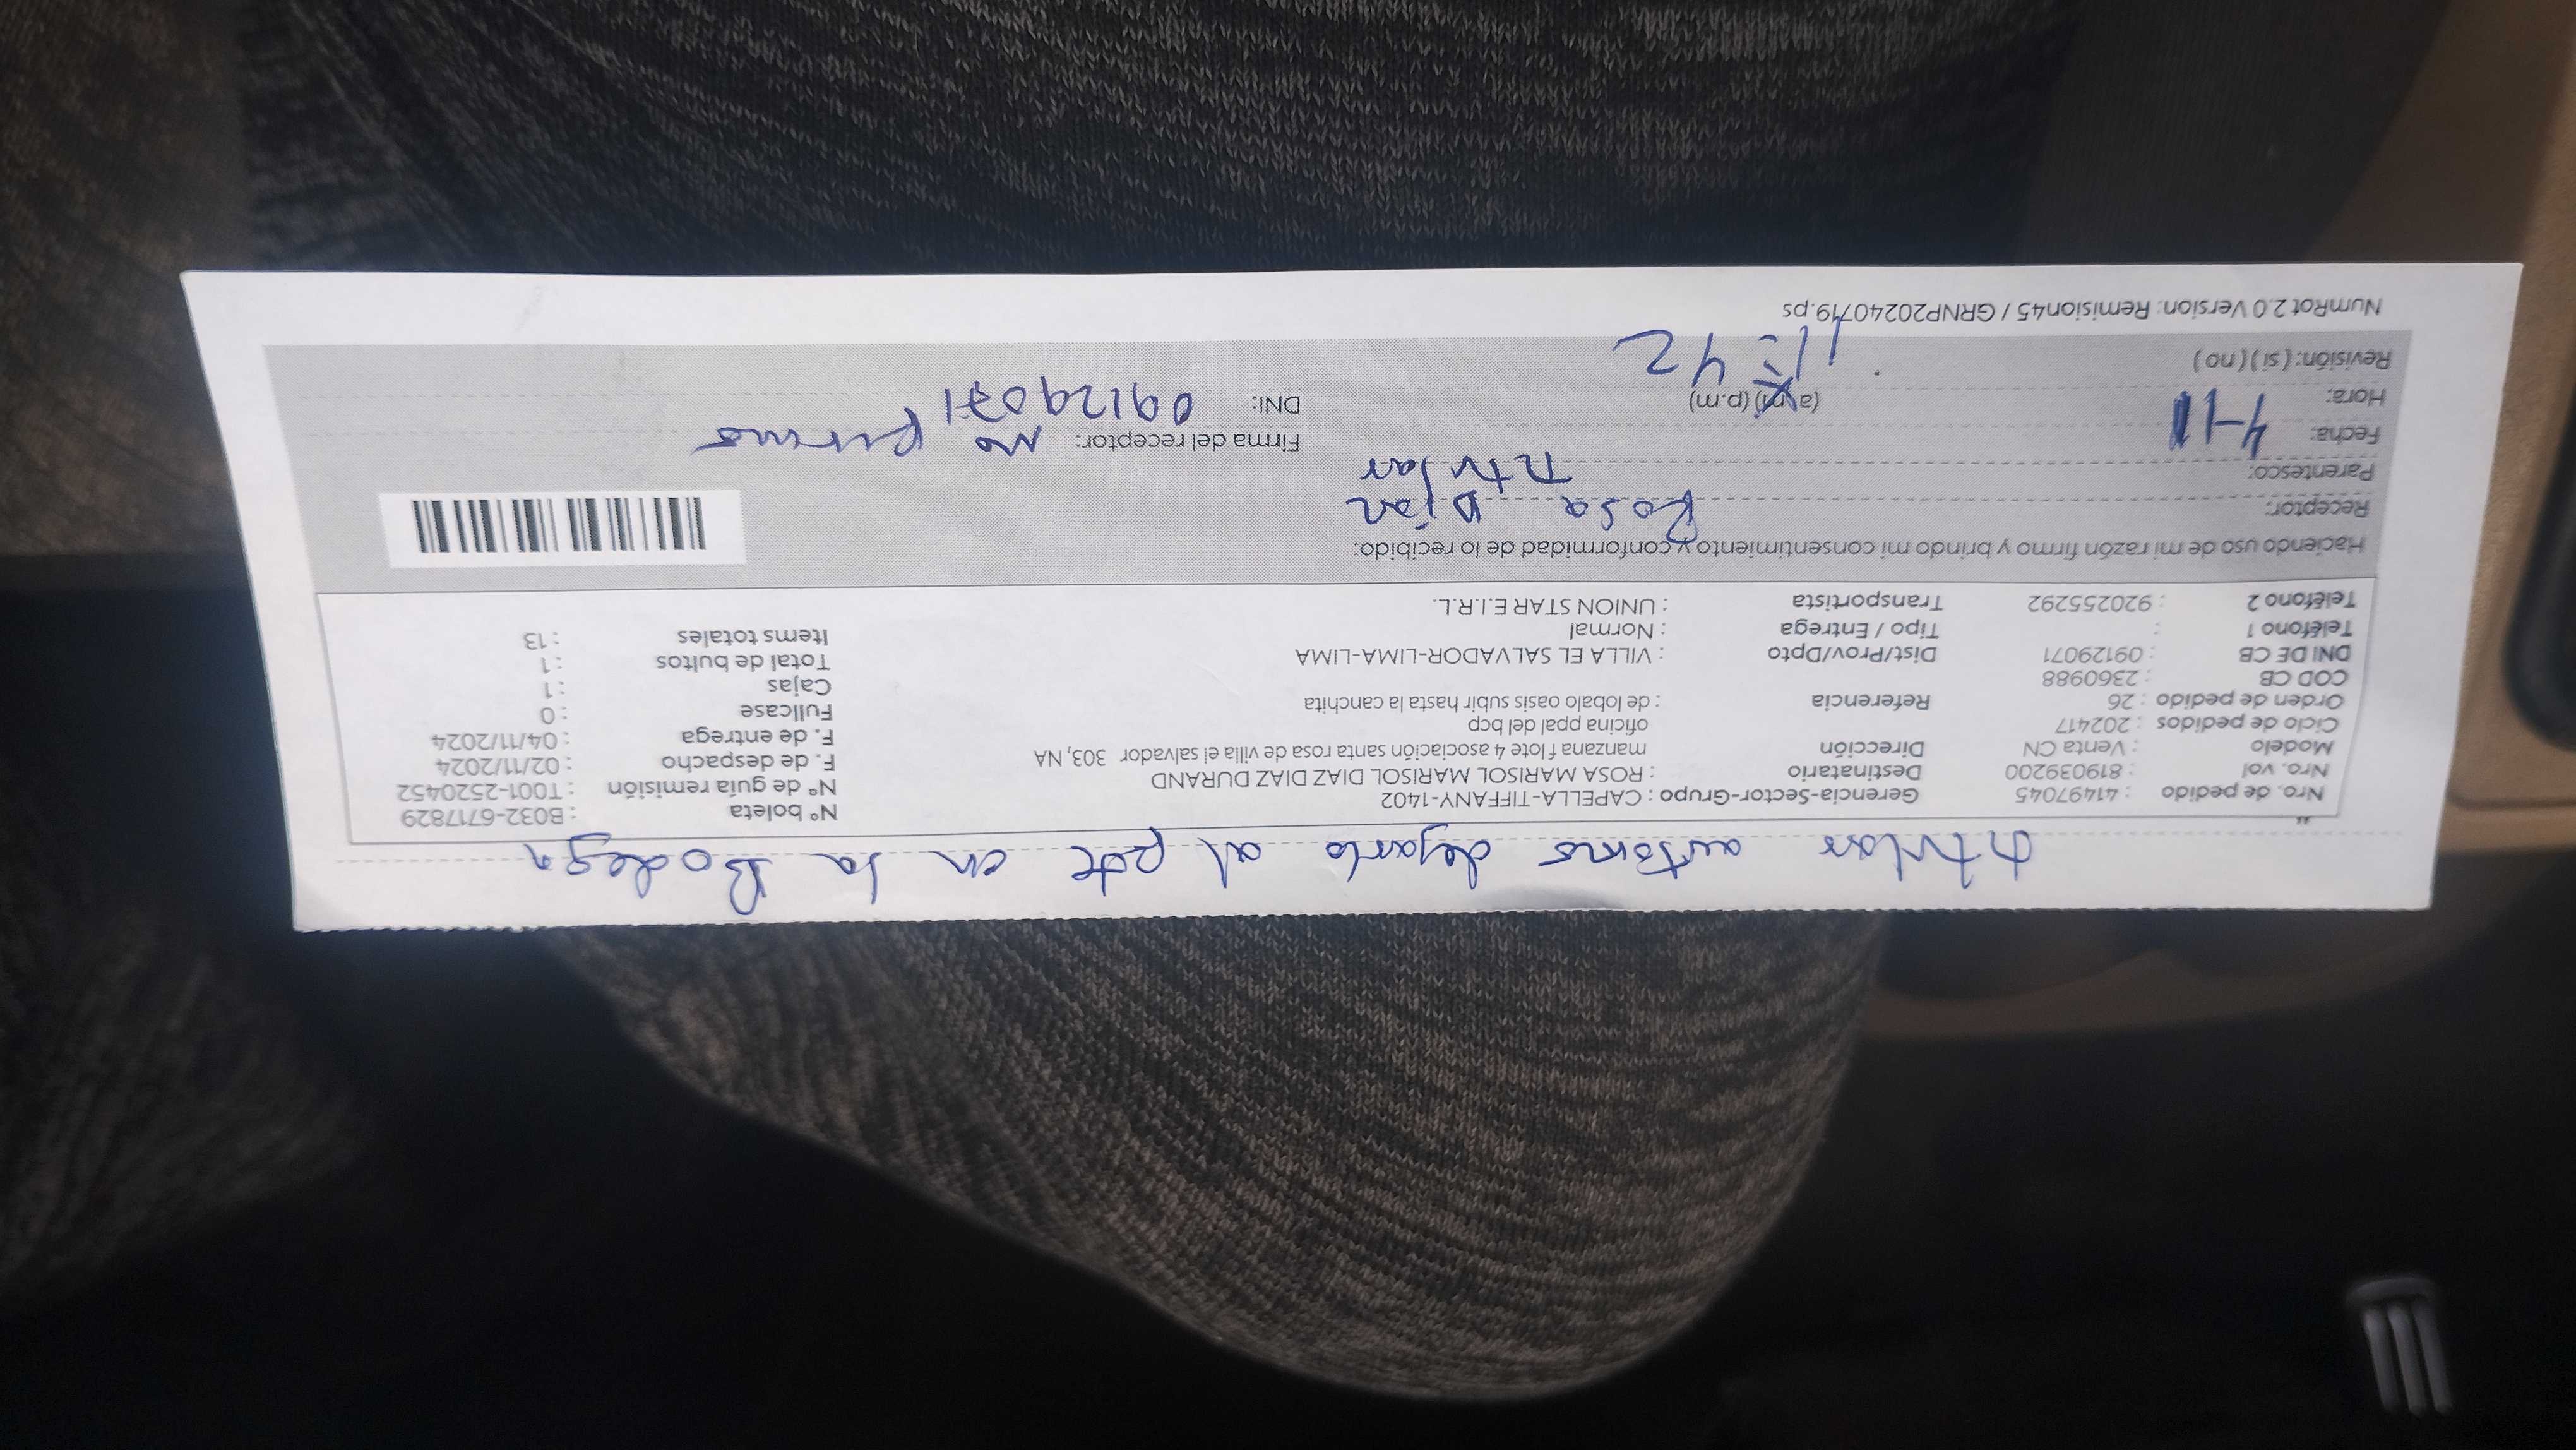 titular autorizo dejarlo al pdt en la Bodega
Nro. de pedido : 41497045 Gerencia-Sector-Grupo : CAPELLA-TIFFANY-1402 N° boleta : B032-6717829
Nro. vol : 819039200 Destinatario : ROSA MARISOL MARISOL DIAZ DIAZ DURAND N° de guía remisión : T001-2520452
Modelo : Venta CN Dirección manzana f lote 4 asociación santa rosa de villa el salvador 303, NA F. de despacho : 02/11/2024
Ciclo de pedidos : 202417 oficina ppal del bcp F. de entrega : 04/11/2024
Orden de pedido : 26 Referencia : de lobalo oasis subir hasta la canchita Fullcase : 0
COD CB : 2360988 Cajas : 1
DNI DE CB : 09129071 Dist/Prov/Dpto : VILLA EL SALVADOR-LIMA-LIMA Total de bultos : 1
Teléfono 1 : Tipo / Entrega : Normal Items totales : 13
Teléfono 2 : 920255292 Transportista : UNION STAR E.I.R.L.
Haciendo uso de mi razón firmo y brindo mi consentimiento y conformidad de lo recibido:
Receptor: Rosa Diaz
Parentesco: titular
Fecha: 4-11 Firma del receptor: no firmo
Hora: (a.m) (p.m) 11:42 DNI: 09129071
Revisión: ( si ) ( no )
NumRot 2.0 Version: Remision45 / GRNP20240719.ps